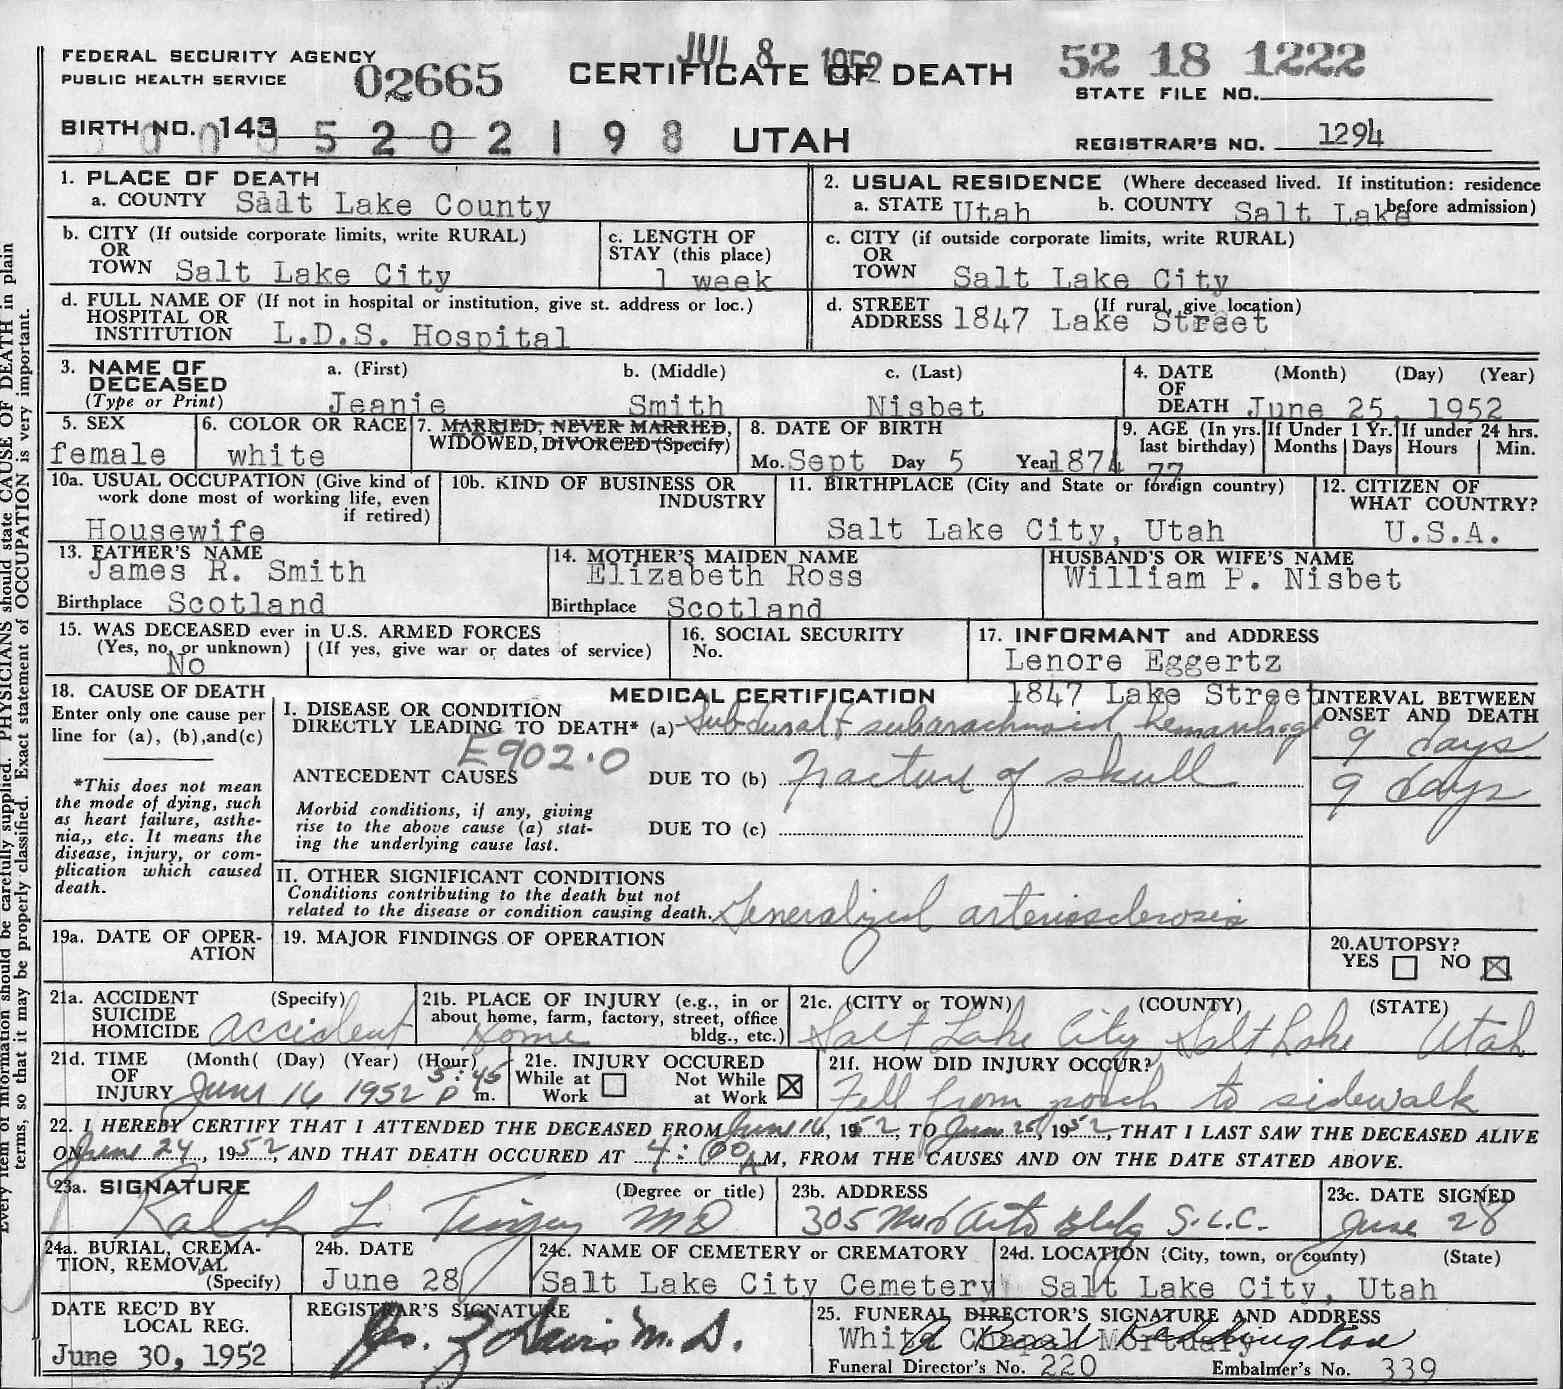 JUL 8 1952
FEDERAL SECURITY AGENCY
PUBLIC HEALTH SERVICE
02665
CERTIFICATE OF DEATH
52 18 1222
STATE FILE NO.
BIRTH NO. 143
5 2 0 2 1 9 8
UTAH
REGISTRAR'S NO. 1294
1. PLACE OF DEATH
a. COUNTY Salt Lake County
2. USUAL RESIDENCE (Where deceased lived. If institution: residence before admission)
a. STATE Utah b. COUNTY Salt Lake
b. CITY (If outside corporate limits, write RURAL)
OR
TOWN Salt Lake City
c. LENGTH OF
STAY (this place)
1 week
c. CITY (if outside corporate limits, write RURAL)
OR
TOWN Salt Lake City
d. FULL NAME OF (If not in hospital or institution, give st. address or loc.)
HOSPITAL OR
INSTITUTION L.D.S. Hospital
d. STREET (If rural, give location)
ADDRESS 1847 Lake Street
3. NAME OF
DECEASED
(Type or Print)
a. (First) b. (Middle) c. (Last)
Jeanie Smith Nisbet
4. DATE (Month) (Day) (Year)
OF
DEATH June 25, 1952
5. SEX
female
6. COLOR OR RACE
white
7. MARRIED, NEVER MARRIED,
WIDOWED, DIVORCED (Specify)
8. DATE OF BIRTH
Mo. Sept Day 5 Year 1874
9. AGE (In yrs. last birthday)
77
If Under 1 Yr.
Months Days
If under 24 hrs.
Hours Min.
10a. USUAL OCCUPATION (Give kind of
work done most of working life, even
if retired)
Housewife
10b. KIND OF BUSINESS OR
INDUSTRY
11. BIRTHPLACE (City and State or foreign country)
Salt Lake City, Utah
12. CITIZEN OF
WHAT COUNTRY?
U.S.A.
13. FATHER'S NAME
James R. Smith
Birthplace Scotland
14. MOTHER'S MAIDEN NAME
Elizabeth Ross
Birthplace Scotland
HUSBAND'S OR WIFE'S NAME
William P. Nisbet
15. WAS DECEASED ever in U.S. ARMED FORCES
(Yes, no, or unknown) (If yes, give war or dates of service)
No
16. SOCIAL SECURITY
No.
17. INFORMANT and ADDRESS
Lenore Eggertz
1847 Lake Street
18. CAUSE OF DEATH
Enter only one cause per
line for (a), (b),and(c)
*This does not mean
the mode of dying, such
as heart failure, asthe-
nia,, etc. It means the
disease, injury, or com-
plication which caused
death.
MEDICAL CERTIFICATION
I. DISEASE OR CONDITION
DIRECTLY LEADING TO DEATH* (a) Subdural & subarachnoid hemorrhage
E902.0
ANTECEDENT CAUSES DUE TO (b) Fracture of skull
Morbid conditions, if any, giving
rise to the above cause (a) stat-
ing the underlying cause last.
DUE TO (c)
INTERVAL BETWEEN
ONSET AND DEATH
9 days
9 days
II. OTHER SIGNIFICANT CONDITIONS
Conditions contributing to the death but not
related to the disease or condition causing death. Generalized arteriosclerosis
19a. DATE OF OPER-
ATION
19. MAJOR FINDINGS OF OPERATION
20.AUTOPSY?
YES NO
21a. ACCIDENT (Specify)
SUICIDE
HOMICIDE Accident
21b. PLACE OF INJURY (e.g., in or
about home, farm, factory, street, office
bldg., etc.)
Home
21c. (CITY or TOWN) (COUNTY) (STATE)
Salt Lake City Salt Lake Utah
21d. TIME (Month( (Day) (Year) (Hour)
OF
INJURY June 16 1952 5:45 P m.
21e. INJURY OCCURED
While at Work
Not While at Work
21f. HOW DID INJURY OCCUR?
Fell from porch to sidewalk
22. I HEREBY CERTIFY THAT I ATTENDED THE DECEASED FROM June 16, 1952, TO June 25, 1952, THAT I LAST SAW THE DECEASED ALIVE
ON June 24, 1952, AND THAT DEATH OCCURED AT 4:00 A M, FROM THE CAUSES AND ON THE DATE STATED ABOVE.
23a. SIGNATURE (Degree or title)
Ralph L. Tingey MD
23b. ADDRESS
305 Auto Bldg S.L.C.
23c. DATE SIGNED
June 28
24a. BURIAL, CREMA-
TION, REMOVAL
(Specify)
24b. DATE
June 28
24c. NAME OF CEMETERY or CREMATORY
Salt Lake City Cemetery
24d. LOCATION (City, town, or county) (State)
Salt Lake City, Utah
DATE REC'D BY
LOCAL REG.
June 30, 1952
REGISTRAR'S SIGNATURE
M.D.
25. FUNERAL DIRECTOR'S SIGNATURE AND ADDRESS
White Chapel Mortuary
Funeral Director's No. 220 Embalmer's No. 339
Every item of information should be carefully supplied. PHYSICIANS should state CAUSE OF DEATH in plain
terms, so that it may be properly classified. Exact statement of OCCUPATION is very important.